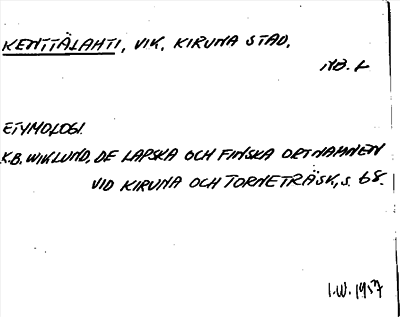 KENTTÄLAHTI, VIK, KIRUNA STAD.
NB. L
ETYMOLOGI.
K.B. WIKLUND, DE LAPSKA OCH FINSKA ORTNAMNEN
VID KIRUNA OCH TORNETRÄSK, s. 68.
I.W. 1957